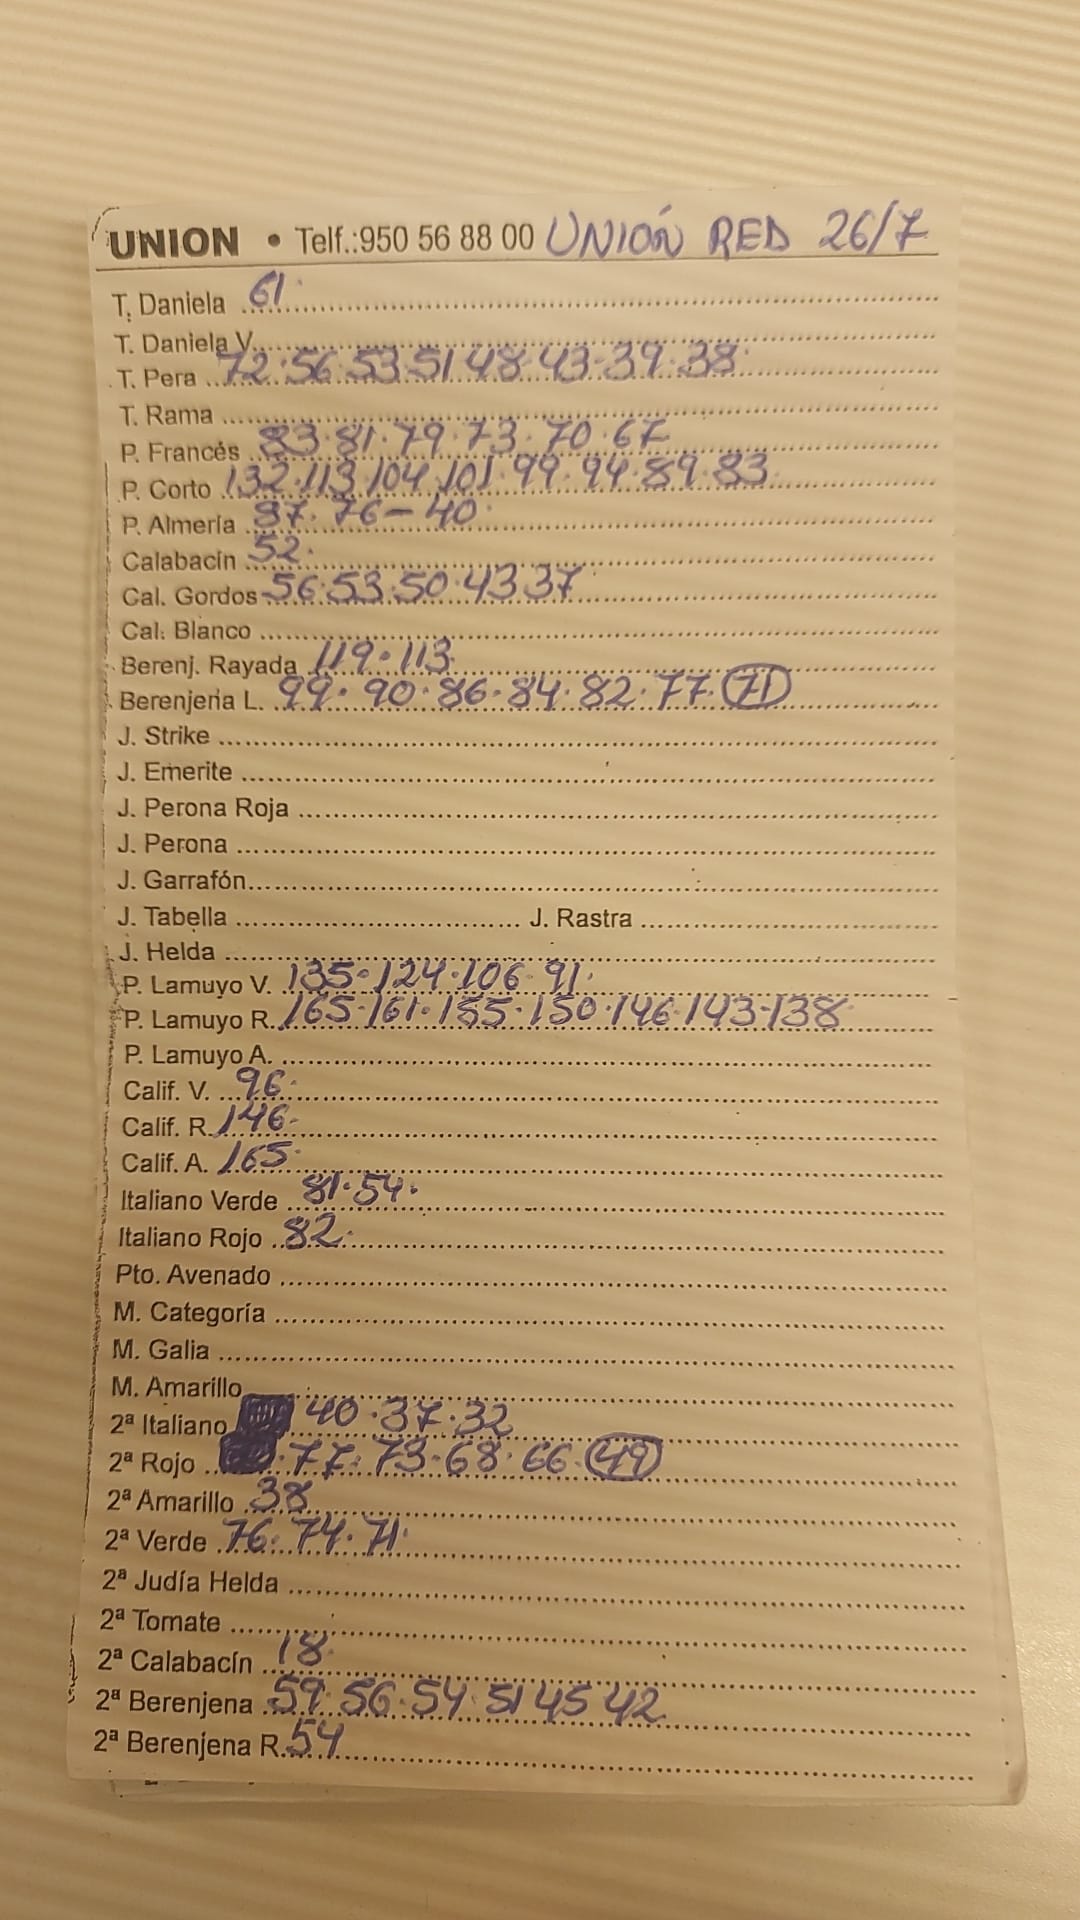 UNION • Telf.:950 56 88 00 UNIÓN RED 26/7
T. Daniela 61.
T. Daniela V.
T. Pera 72.56.53.51 48.43-39.38.
T. Rama
P. Francés 83.81.79.73.70.67
P. Corto 132.113 104.101.99.94.89.83.
P. Almería 87.76-40.
Calabacín 52.
Cal. Gordos 56.53.50.43 37
Cal. Blanco
Berenj. Rayada 119.113.
Berenjena L. 99.90.86.84.82.77.71
J. Strike
J. Emerite
J. Perona Roja
J. Perona
J. Garrafón
J. Tabella J. Rastra
J. Helda
P. Lamuyo V. 135.124.106.91.
P. Lamuyo R. 165.161.155.150.146.143-138
P. Lamuyo A.
Calif. V. 96.
Calif. R. 146.
Calif. A. 165.
Italiano Verde 81.54.
Italiano Rojo 82.
Pto. Avenado
M. Categoría
M. Galia
M. Amarillo
2ª Italiano 40.37.32
2ª Rojo .77.73.68.66.49
2ª Amarillo 38
2ª Verde 76.74.71.
2ª Judía Helda
2ª Tomate
2ª Calabacín 18.
2ª Berenjena 59.56.54.51 45 42
2ª Berenjena R. 54